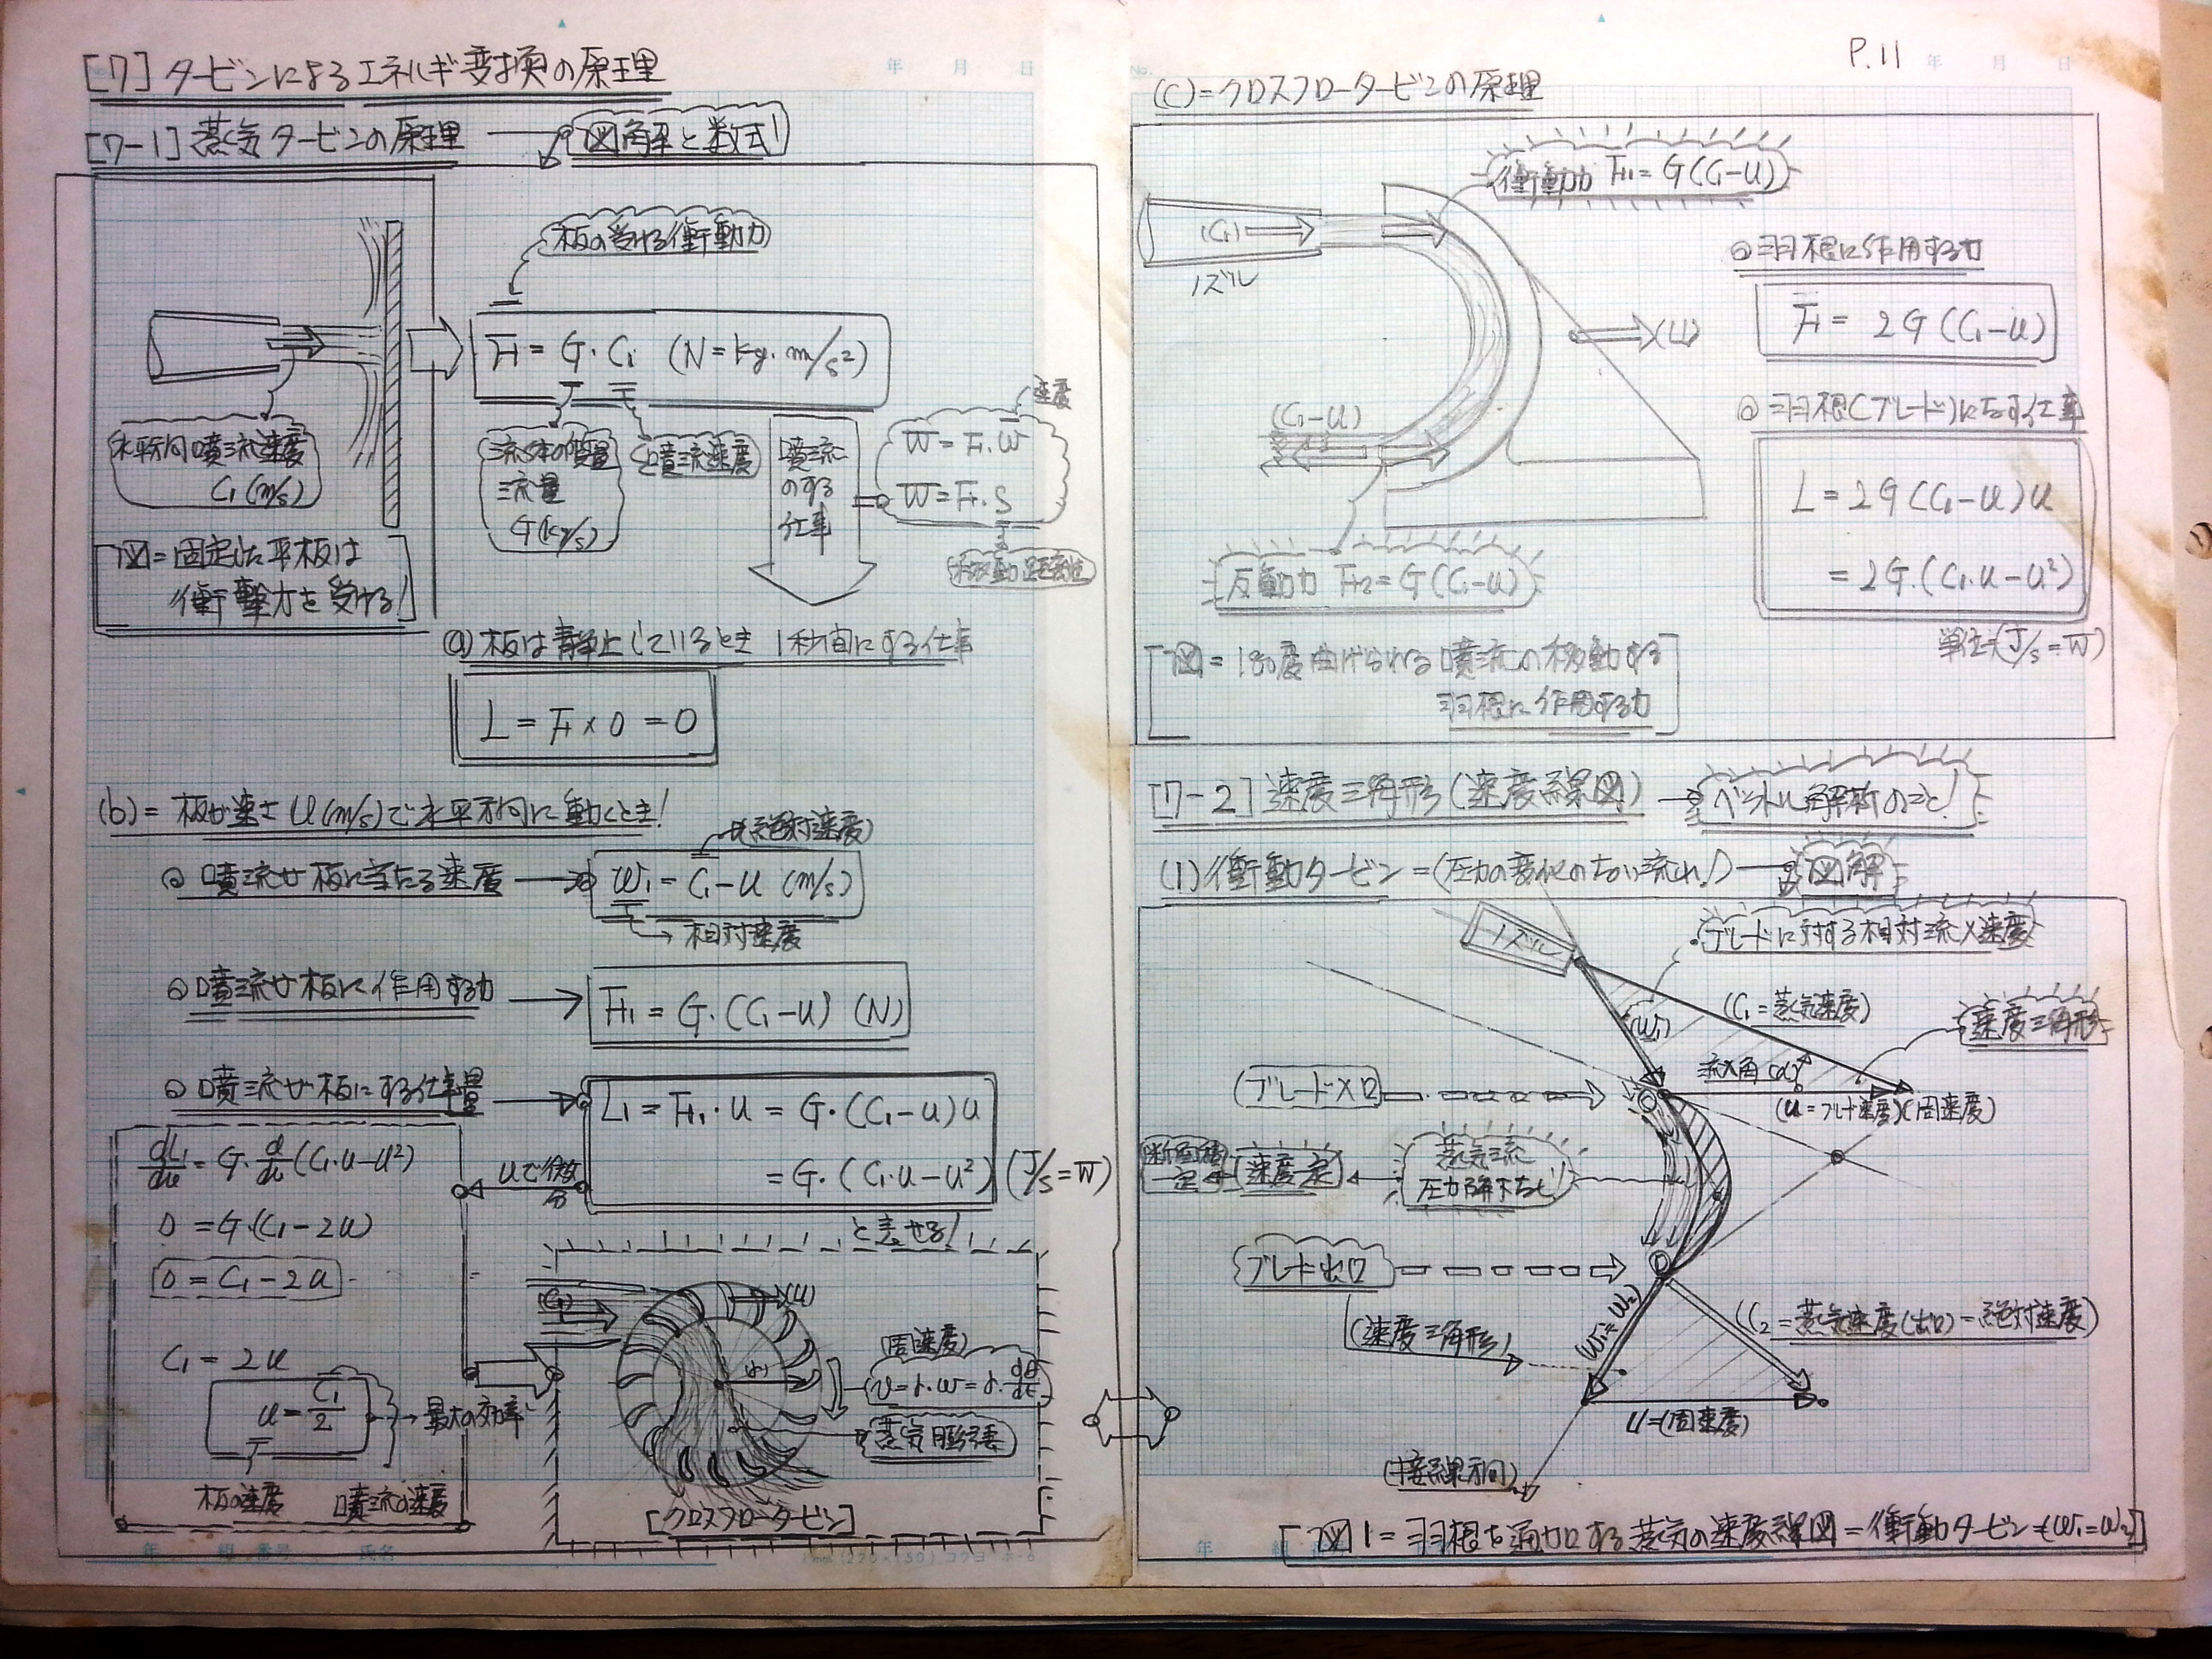 [7] タービンによるエネルギ変換の原理
[7-1] 蒸気タービンの原理
図解と数式!
板の受ける衝動力
F = G・C₁ (N=kg・m/s²)
水平方向噴流速度
C₁ (m/s)
流体の質量
流量
G(kg/s)
噴流速度
噴流
のする
仕事
速度
W = F・w
W = F・S
移動距離
図=固定した平板は
衝撃力を受ける!
(a) 板は静止しているとき 1秒間にする仕事
L = F × 0 = 0
(b)= 板が速さ U(m/s)で水平方向に動くとき!
(絶対速度)
噴流が板に当たる速度
w₁ = C₁-u (m/s)
相対速度
噴流が板に作用する力
F₁ = G・(C₁-u) (N)
噴流が板にする仕事量
L₁ = F₁・u = G・(C₁-u)u
= G・(C₁・u-u²) (J/s=W)
と表せる!
uで微分
dL₁/du = G・d/du (C₁・u-u²)
0 = G・(C₁-2u)
0 = C₁-2u
C₁ = 2u
u = C₁/2
最大の効率
板の速度
噴流の速度
(C₁)
(U)
(r)
(周速度)
v=r・ω=r・dθ/dt
蒸気膨張
[クロスフロータービン]
年 組 番号 氏名
P.11
No.
年 月 日
(C)=クロスフロータービンの原理
衝動力 F₁=G(C₁-U)
(C₁)
ノズル
(U)
羽根に作用する力
F = 2G(C₁-u)
(C₁-U)
羽根(ブレード)になす仕事
L = 2G(C₁-u)u
= 2G・(C₁・u-u²)
単位(J/s=W)
反動力 F₂=G(C₁-U)
図=180度曲げられる噴流の移動する
羽根に作用する力
[7-2] 速度三角形(速度線図)
ベクトル解析のこと!
(1) 衝動タービン=(圧力の変化のない流れ!)
図解
ノズル
ブレードに対する相対流入速度
(W₁)
(C₁=蒸気速度)
速度三角形
流入角(α)
(ブレード入口)
(u=ブレード速度)(周速度)
断面積
一定
速度一定
蒸気流
圧力降下なし!
ブレード出口
(速度三角形)
(W₁=W₂)
(C₂=蒸気速度(出口)=絶対速度)
U=(周速度)
(接線方向)
[図1=羽根を通加する蒸気の速度線図=衝動タービン=(W₁=W₂)]